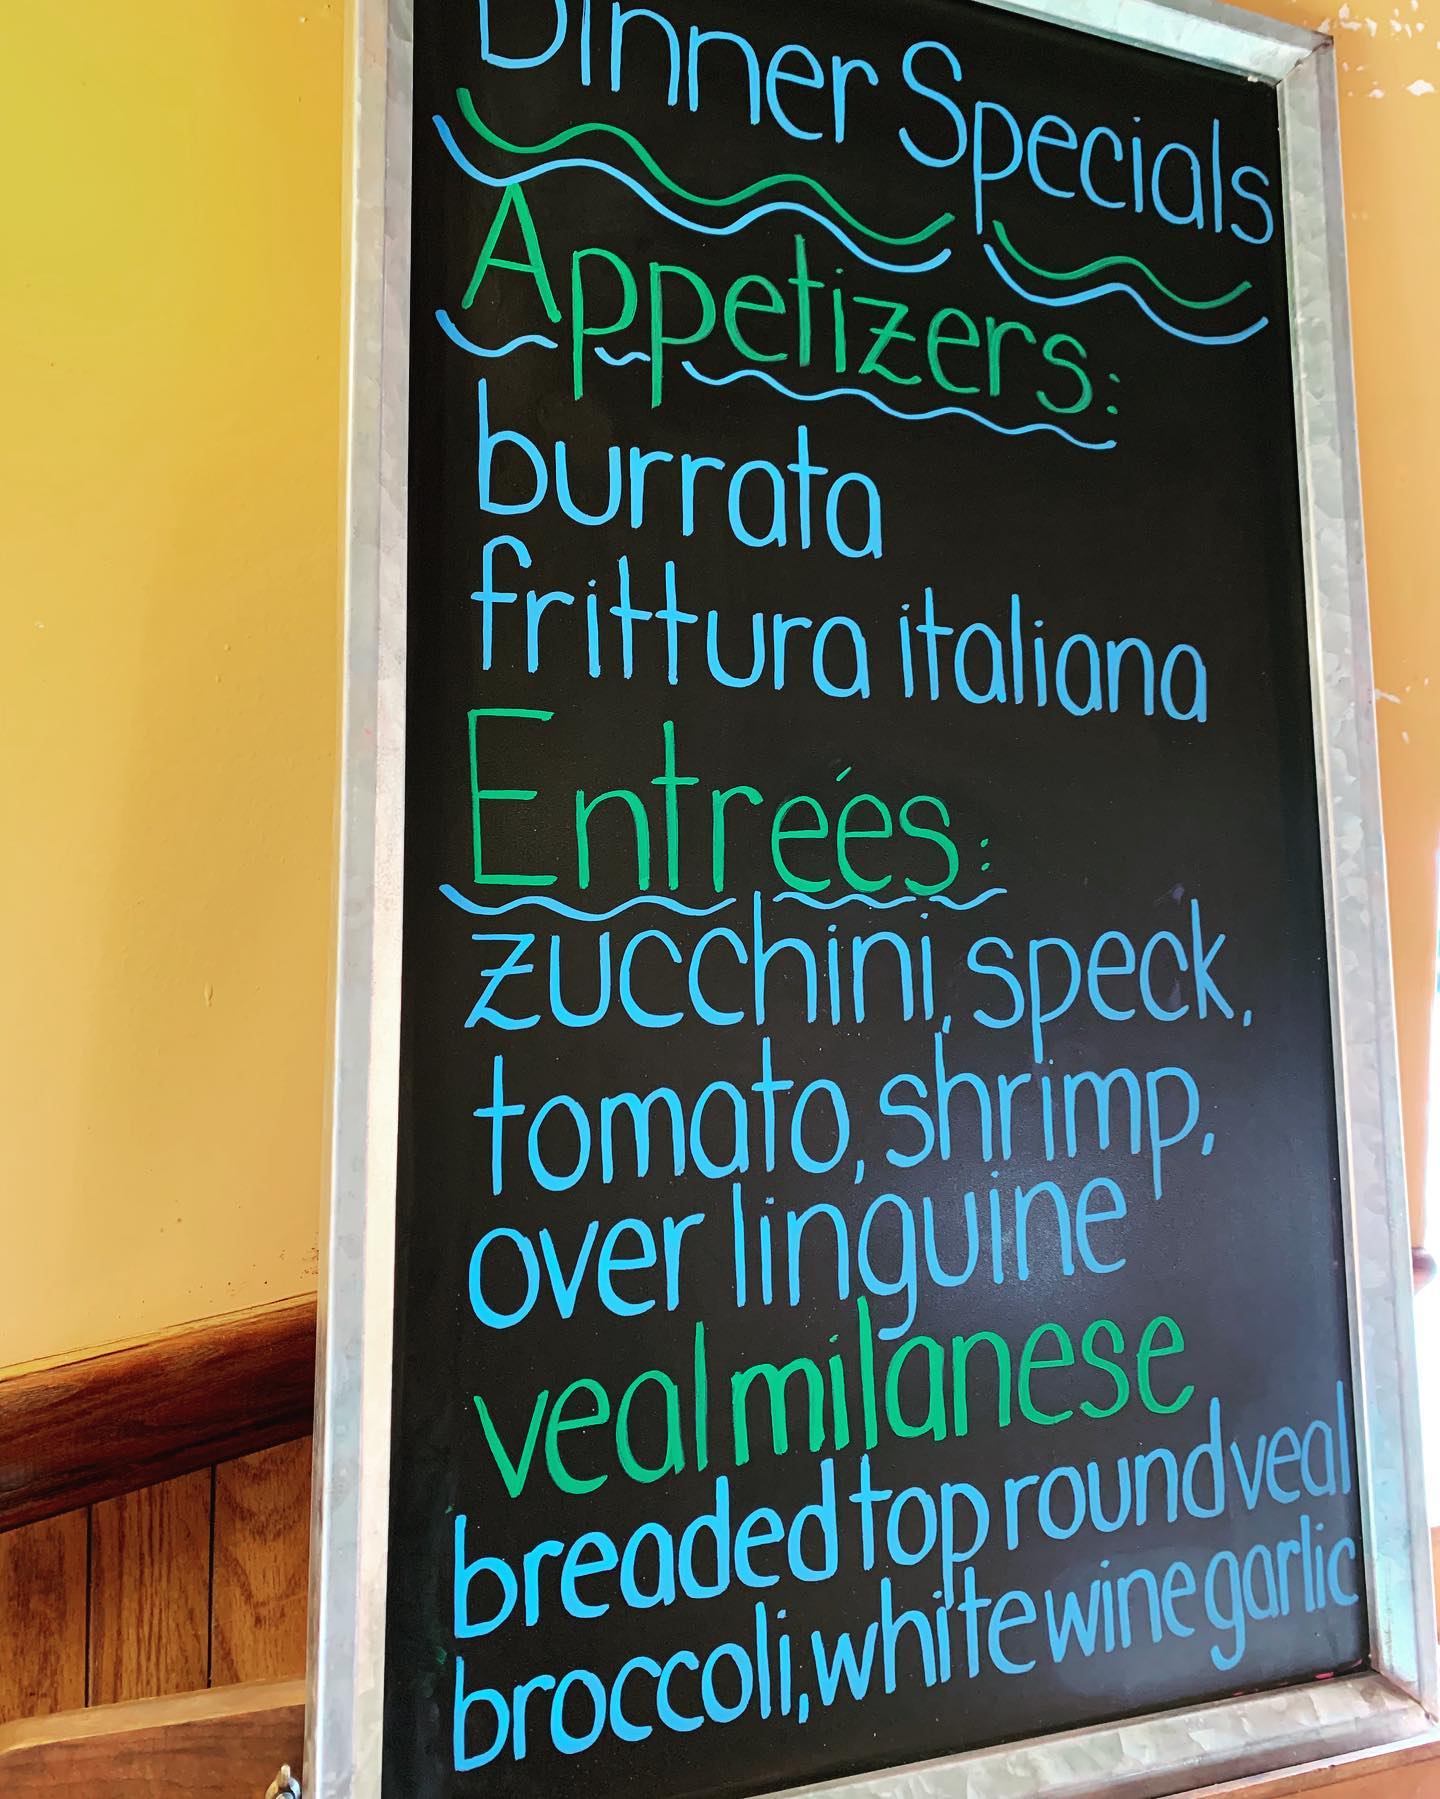 Dinner Specials
Appetizers:
burrata
frittura italiana
Entreés:
zucchini, speck,
tomato, shrimp,
over linguine
veal milanese
breaded top round veal
broccoli, white wine garlic